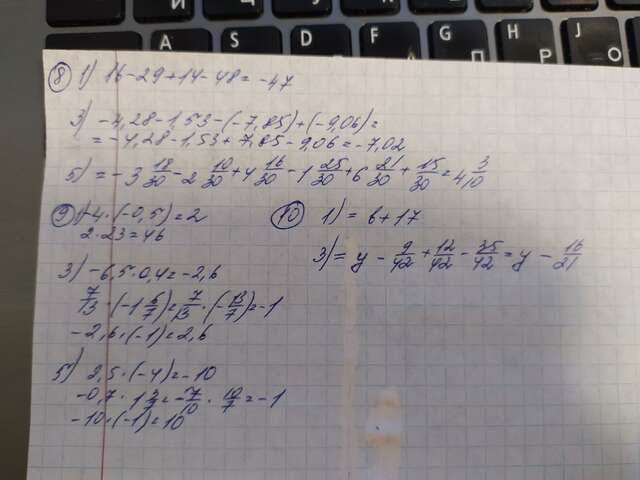 A S D F G H J
П О
8 1) 16-29+14-48=-47
3) -4,28-1,53-(-7,85)+(-9,06)=
=-4,28-1,53+7,85-9,06=-7,02
5) =-3 18/30-2 10/30+4 16/30-1 25/30+6 21/30+15/30=4 3/10
9 1) -4·(-0,5)=2
2·23=46
3) -6,5·0,4=-2,6
7/13·(-1 6/7)=7/13·(-13/7)=-1
-2,6·(-1)=2,6
5) 2,5·(-4)=-10
-0,7·1 3/7=-7/10·10/7=-1
-10·(-1)=10
10 1) =b+17
3) =y-9/42+12/42-35/42=y-16/21